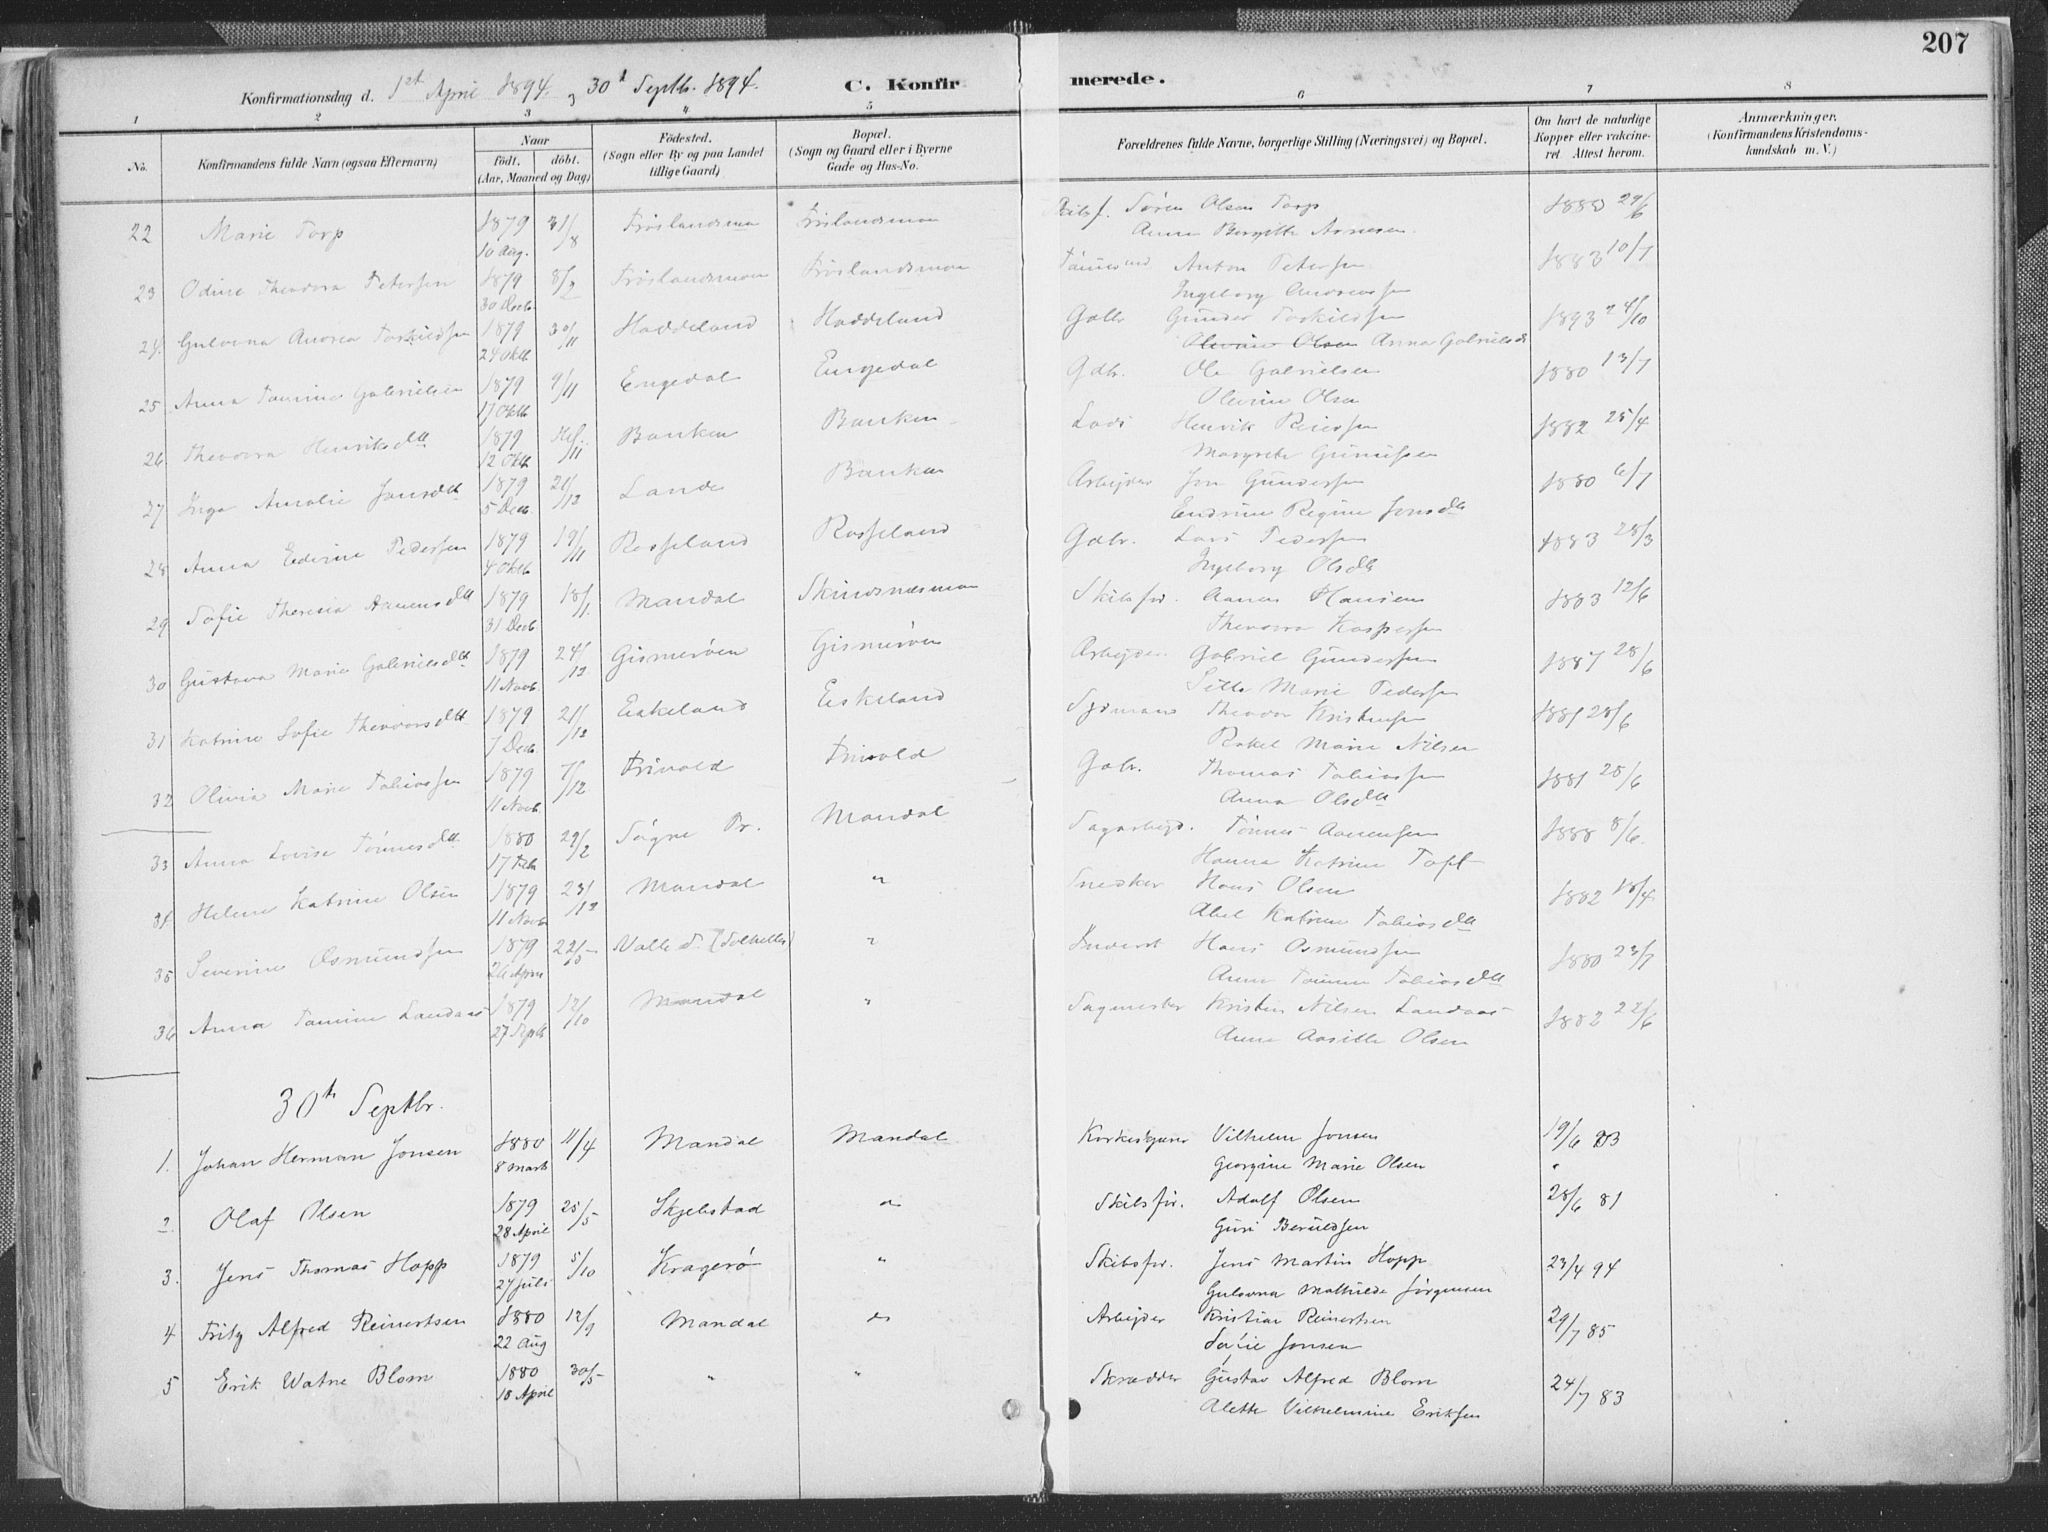 207
Konfirmationsdag d. 1st April 1894 og 30d Septbr. 1894. C. Konfirmerede.
1 2 3 4 5 6 7 8
No. Konfirmandens fulde Navn (ogsaa Efternavn) Naar født. døbt. (Aar, Maaned og Dag) Fødested. (Sogn eller By og paa Landet tillige Gaard) Bopæl. (Sogn og Gaard eller i Byerne Gade og Hus-No. Forældrenes fulde Navne, borgerlige Stilling (Næringsvei) og Bopæl. Om havt de naturlige Kopper eller vakcineret. Attest herom. Anmærkninger. (Konfirmandens Kristendomskundskab m. V.)
22 Marie Torp 1879 31/8 Søren Olsen Torp 1883 29/6
10 Aug.
23 Odine Theodora Petersen 1879 8/2 Anton Petersen 1883 10/7
30 Decb. Ingeborg Andreassen
24. Gulovna Andrea Torkildsen 1879 30/11 Haddeland Haddeland Gbr. Gunder Torkildsen 1893 24/10
24 Oktb Olevine Olsen Anna Gabrielsd
25 Anna Tomine Gabrielsen 1879 9/11 Engedal Engedal Gdbr. Ole Gabrielsen 1880 13/7
17 Oktb Olevine Olsen
26 Theodora Henriksdtt 1879 /11 Banken Banken Lods Henrik Reiersen 1882 25/4
12 Oktb. Margrete
27 Inga Amalie Jonsdtt 1879 21/12 Lande Banken Arbejder Jon Gundersen 1880 6/7
5 Decb. Endrine Regine Jonsdtt
28 Anna Edvine Pedersen 1879 19/11 Rosseland Rosseland Gdbr. Lars Pedersen 1883 28/3
4 Oktb. Ingeborg Olsdtt
29 Sofie Theresia Aanensdtt 1879 18/1. Mandal Skindsnæsmon Skibsfør. Aanen Hansen 1883 12/6
31 Decb. Theodora Kaspersen
30 Gustava Marie Gabrielsdtt 1879 24/12 Gismerøen Gismerøen Arbejder Gabriel Gundersen 1887 28/6
11 Novb. Sille Marie Pedersen
31 Katrine Sofie Theodorsdtt 1879 21/12 Eiskeland Sjømand Theodor Kristensen 1881 28/6
7 Decb. Rakel Marie Nilsen
32 Olivia Marie Tobiassen 1879 7/12 Frivold Frivold Gdbr. Thomas Tobiassen 1881 28/6
11 Novb. Anna Olsdtt
33 Anna Lovise Tønnesdtt 1880 29/2 Søgne Pr. Mandal Sagarbejd. Tønnes Aanensen 1888 8/6.
17 Feb Hanna Katrine Toft
34. Helene Katrine Olsen 1879 23/12 Mandal " Snedker Hans Olsen 1882 18/4
11 Novb Abel Katrine Tobiasdtt
35 Severine Osmundsen 1879 22/5 Valle S. " Hans Osmundsen 1880 23/7
26 April Anne Tomine Tobiasdtt
36 Anna Tomine Landaas 1879 12/10 Mandal " Sagmester Kristen Nilsen Landaas 1882 22/6
27 Septb Anne Aasille Olsen
30th Septbr.
1. Johan Herman Jonsen 1880 11/4 Mandal Mandal Vilhelm Jonsen 19/6 83
8 Marts Georgine Marie Olsen "
2. Olaf Olsen 1879 25/5 Skjebstad " Skibsfør. Adolf Olsen 28/6 81
28 April Guri Beruldsen
3. Jens Thomas Hopp 1879 5/10 Kragerø " Skibsfør. Jens Martin Hopp 23/4 94
27 Juli Gulovna Mathilde Jørgensen
4 Fritz Alfred Reinertsen 1880 12/9 Mandal " Arbejder Kristian Reinertsen 29/7 85
22 Aug Sofie Jonsen
5 Erik Watne Blom 1880 30/5 " " Skrædder Gustav Alfred Blom 24/7 83
18 April Alette Vilhelmine Eriksen